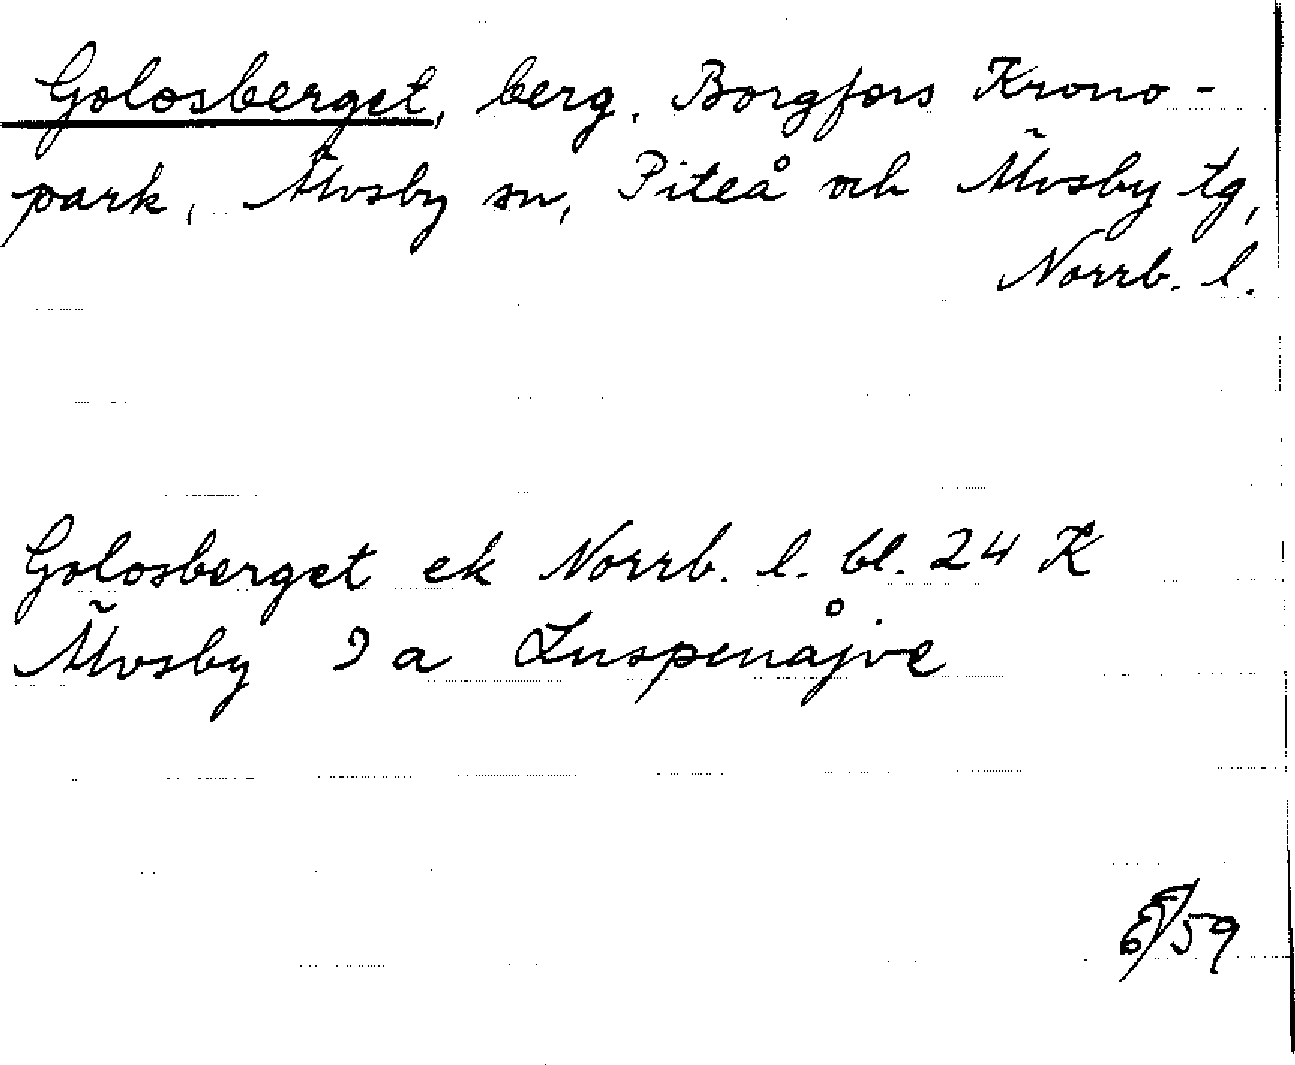 Golosberget, berg, Borgfors Krono-
park, Älvsby sn, Piteå och Älvsby tg,
Norrb. l.
Golosberget ek Norrb. l. bl. 24 K
Älvsby 9 a Luspenåjve
59